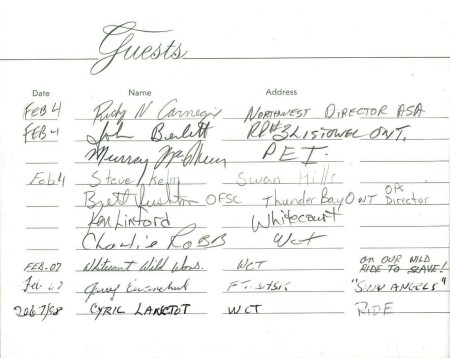 Guests
Date Name Address
FEB 4 Rudy N Carnegie NORTHWEST DIRECTOR ASA
FEB 4 John Berlett RR#3 LISTOWEL ONT.
Murray P.E.I.
Feb 4 Steve Kelm Swan Hills
Brett OFSC Thunder Bay ONT Director
Ken Linford Whitecourt
Charlie ROBB Wct
FEB. 07 Whitecourt Wild Wons. WCT ON OUR WILD RIDE TO SLAVE!
Feb. 07 "SNO ANGELS"
CYRIL LANCTOT WCT RIDE